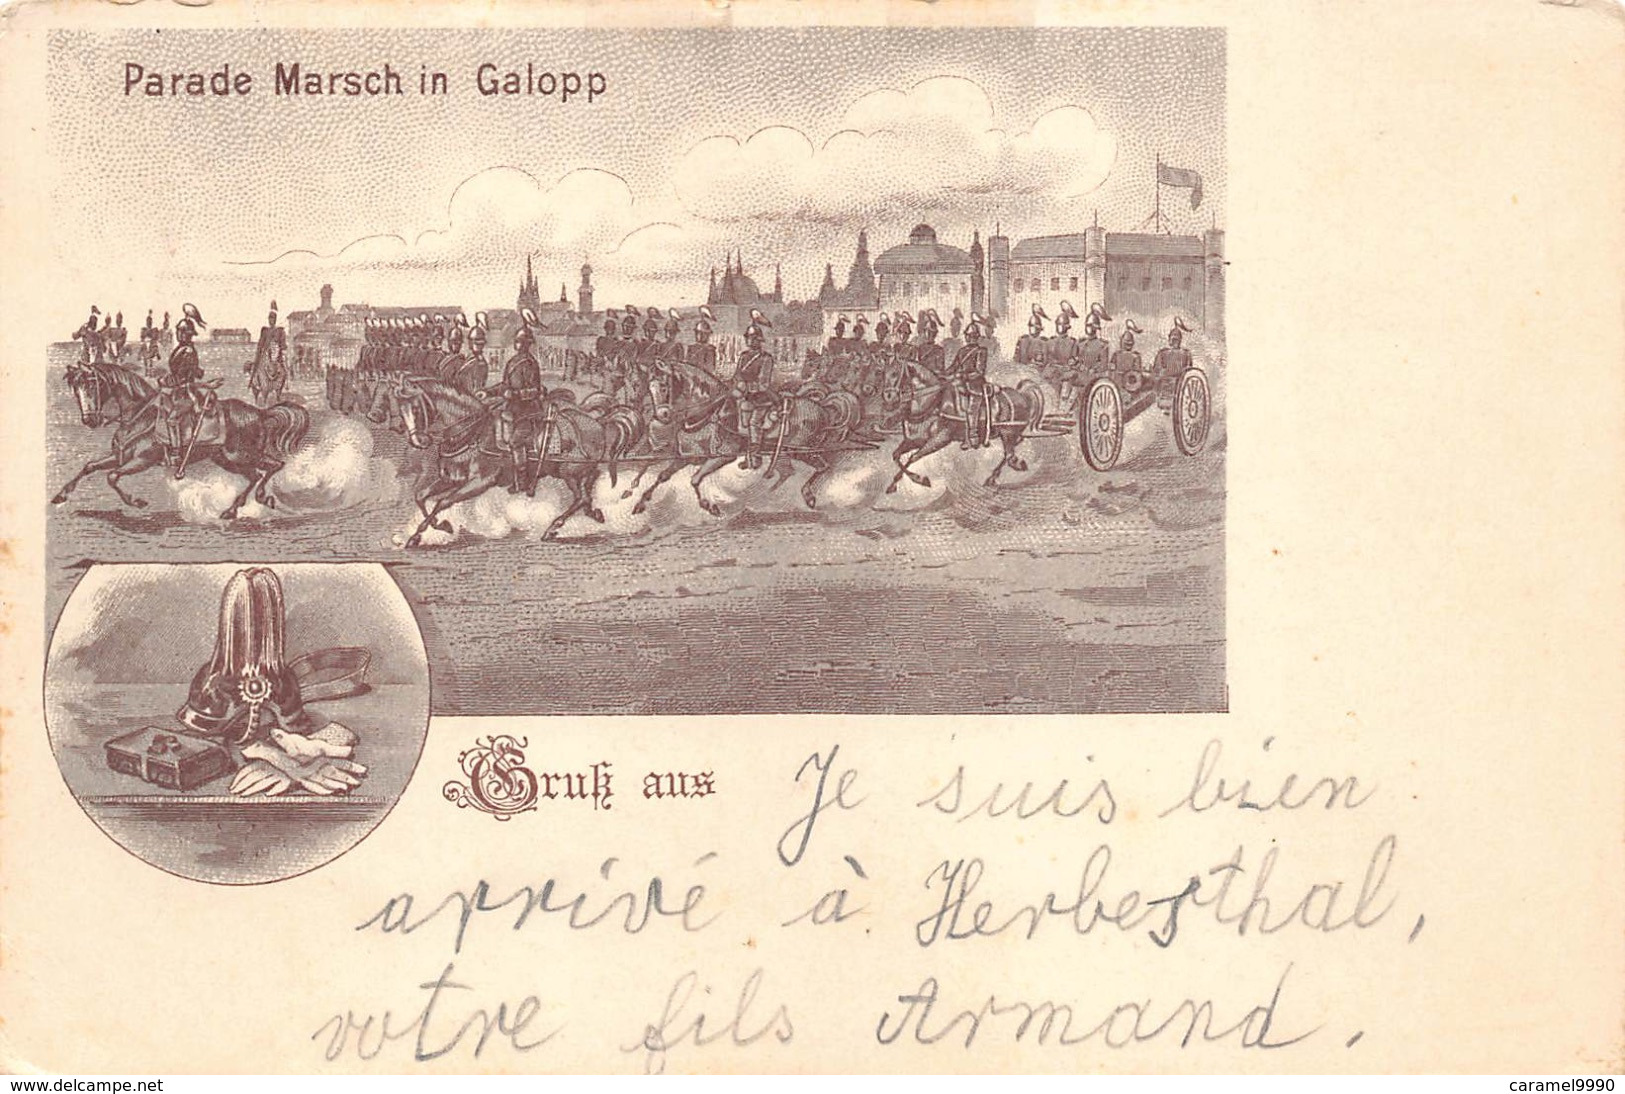 Parade Marsch in Galopp
Gruß aus Je suis bien
arrivé à Herbesthal,
votre fils Armand.
www.delcampe.net
caramel9990